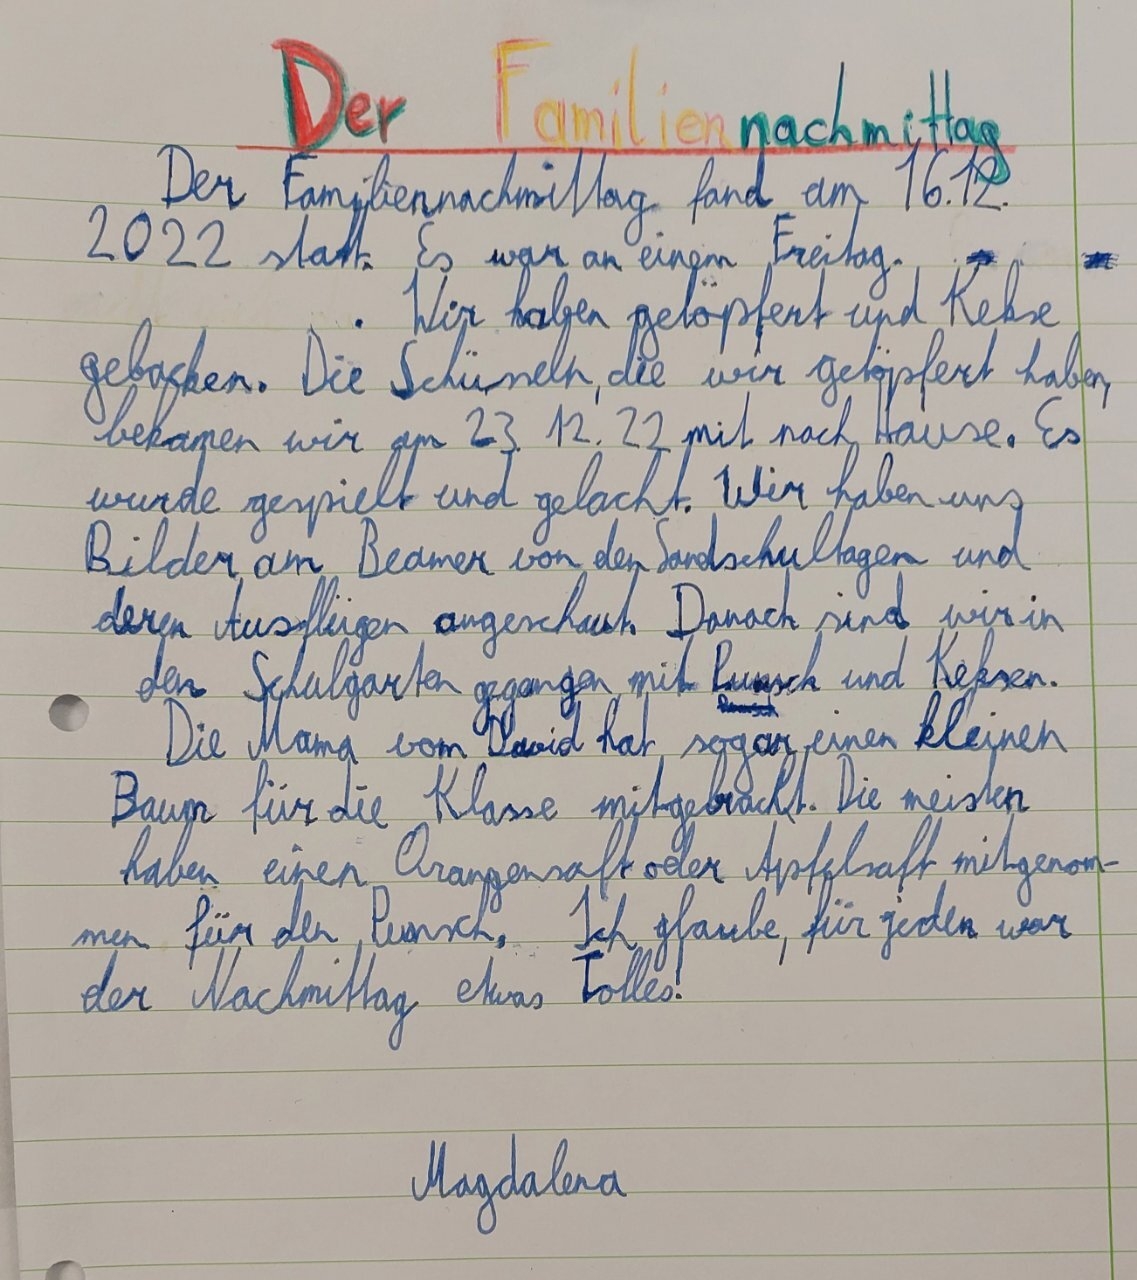 Der Familiennachmittag
Der Familiennachmittag fand am 16.12.
2022 statt. Es war an einem Freitag.
. Wir haben getöpfert und Kekse
gebacken. Die Schüsseln, die wir getöpfert haben,
bekamen wir am 23. 12. 22 mit nach Hause. Es
wurde gespielt und gelacht. Wir haben uns
Bilder am Beamer von den Landschultagen und
deren Ausflügen angeschaut. Danach sind wir in
den Schulgarten gegangen mit Punsch und Keksen.
Die Mama vom David hat sogar einen kleinen
Baum für die Klasse mitgebracht. Die meisten
haben einen Orangensaft oder Apfelsaft mitgenom-
men für den Punsch. Ich glaube, für jeden war
der Nachmittag etwas Tolles!
Magdalena